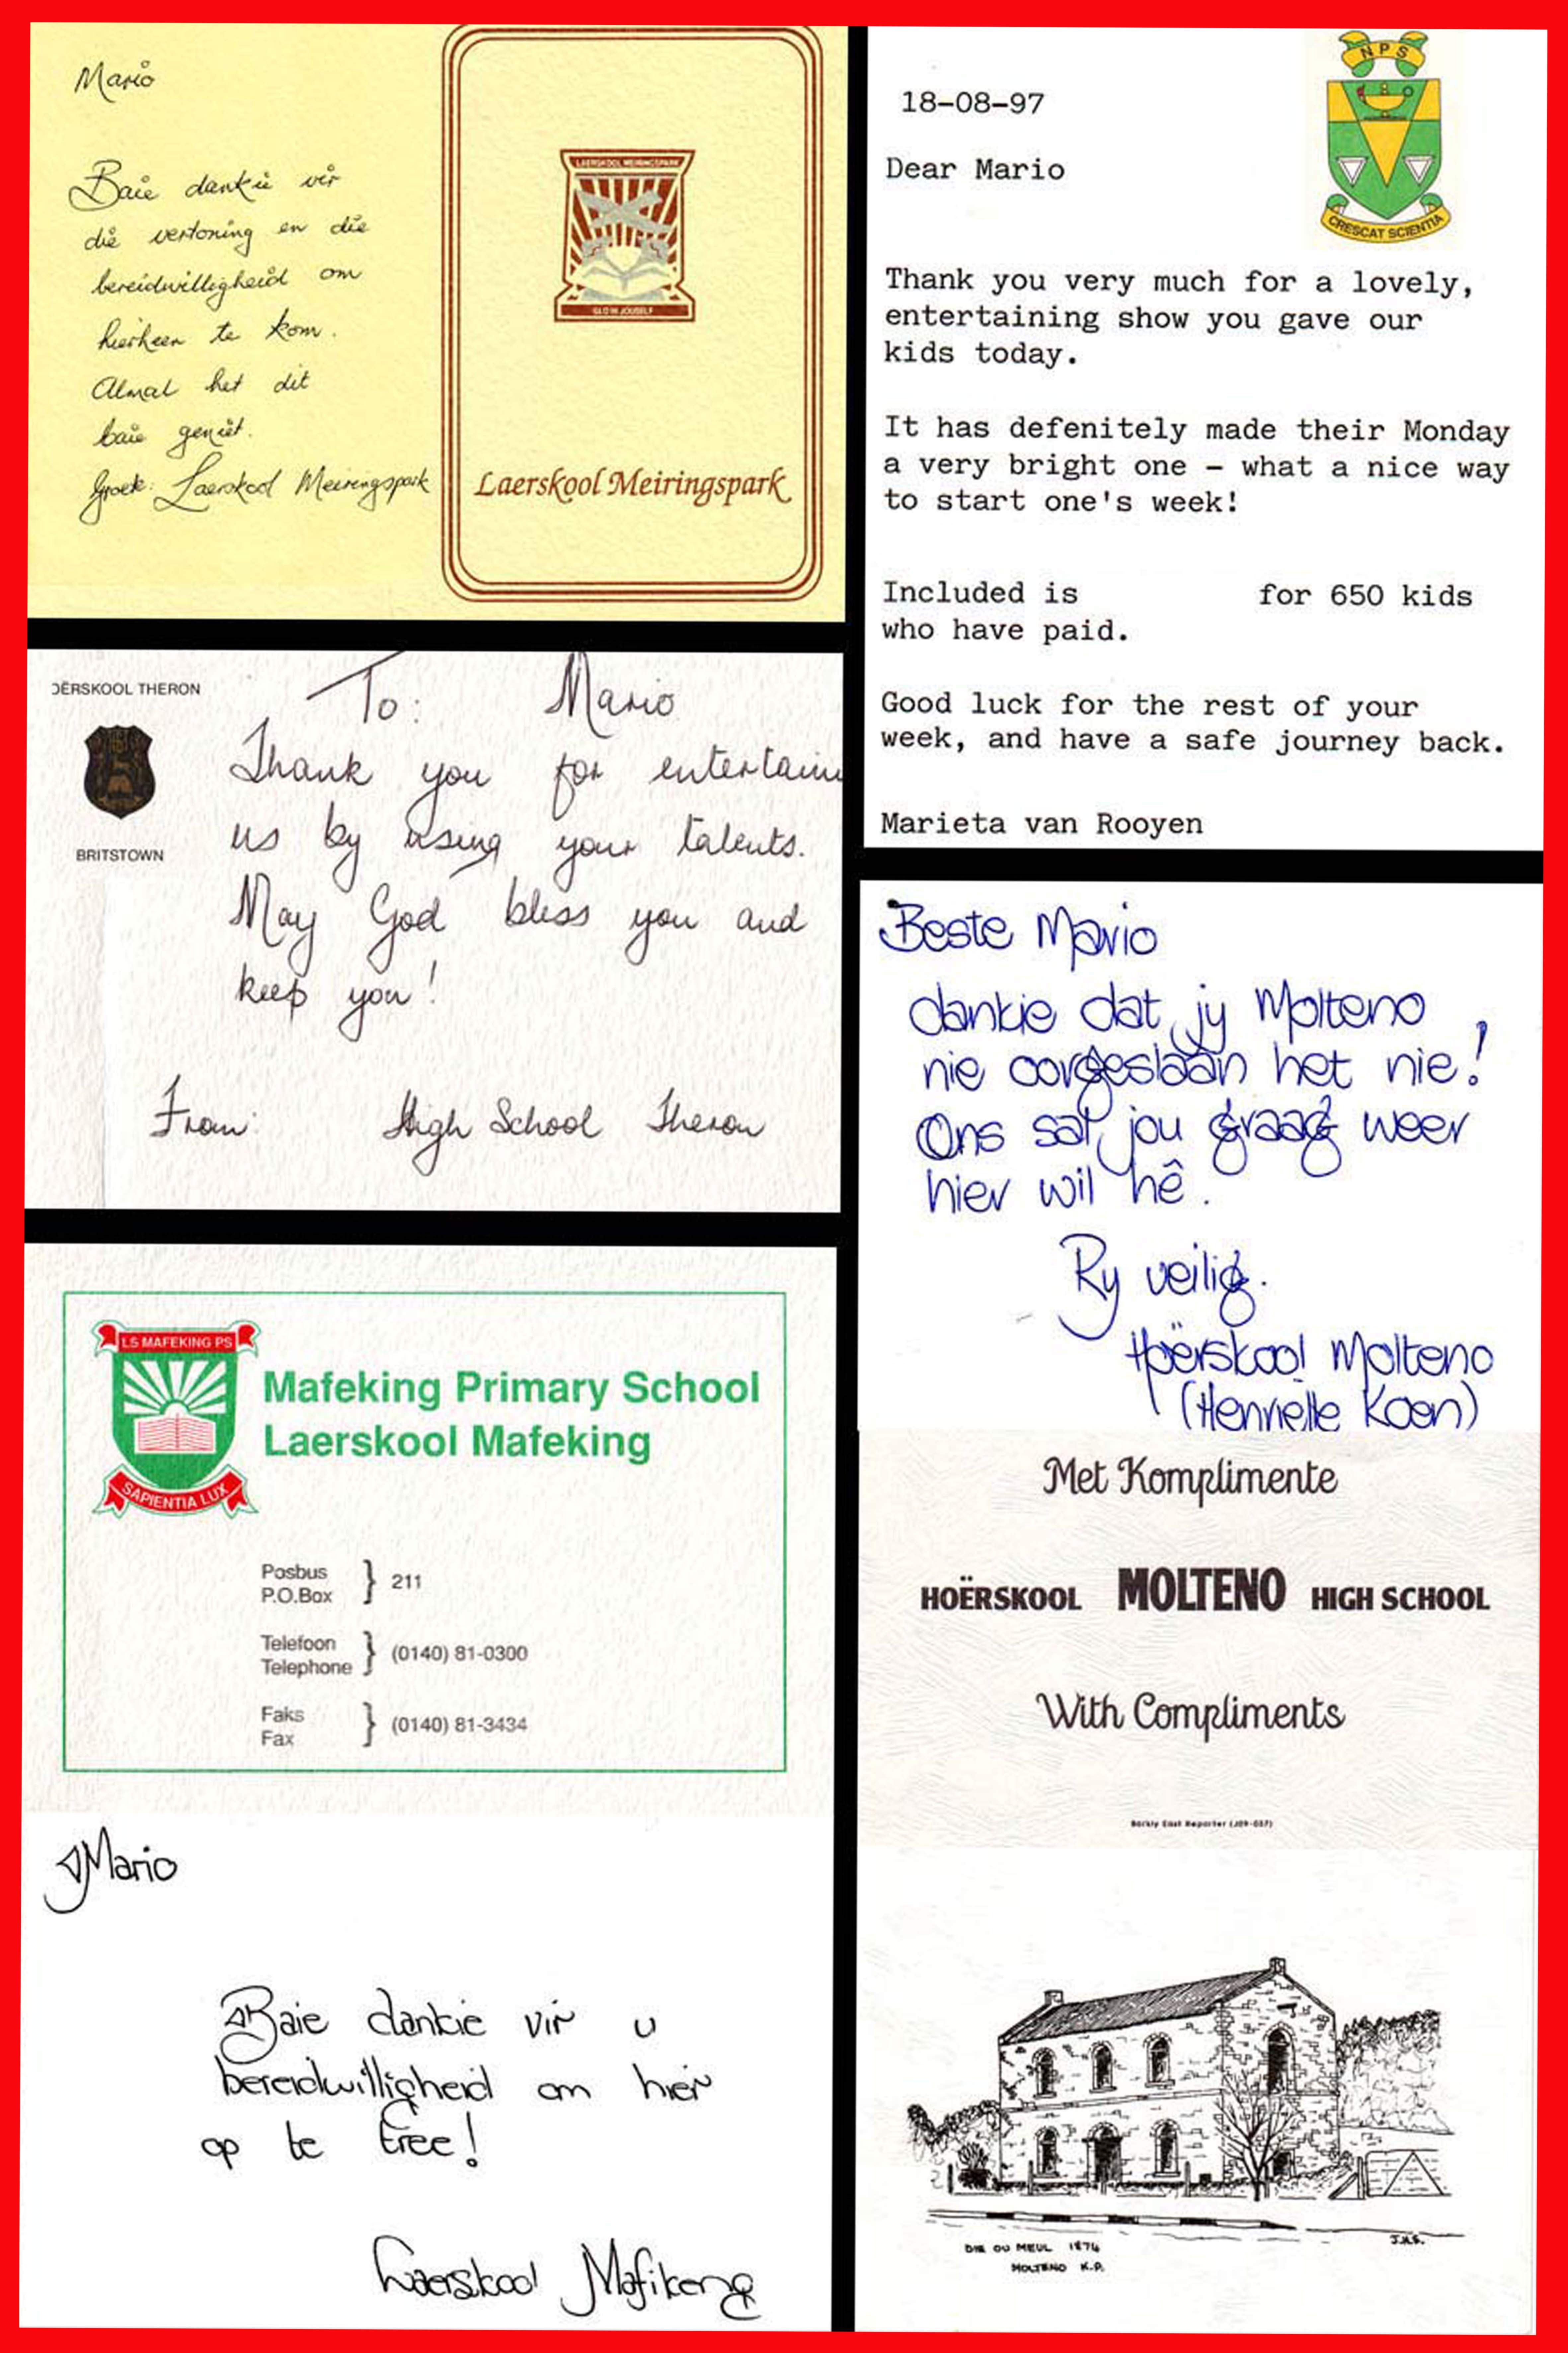 Mario
Baie dankie vir
die vertoning en die
bereidwilligheid om
hierheen te kom.
Almal het dit
baie geniet.
Groete: Laerskool Meiringspark
LAERSKOOL MEIRINGSPARK
GLO IN JOUSELF
Laerskool Meiringspark
OËRSKOOL THERON
BRITSTOWN
To: Mario
Thank you for entertain
us by using your talents.
May God bless you and
keep you!
From: High School Theron
LS MAFEKING PS
SAPIENTIA LUX
Mafeking Primary School
Laerskool Mafeking
Posbus
P.O.Box } 211
Telefoon
Telephone } (0140) 81-0300
Faks
Fax } (0140) 81-3434
Mario
Baie dankie vir u
bereidwilligheid om hier
op te tree!
Laerskool Mafikeng
NPS
CRESCAT SCIENTIA
18-08-97
Dear Mario
Thank you very much for a lovely,
entertaining show you gave our
kids today.
It has defenitely made their Monday
a very bright one - what a nice way
to start one's week!
Included is for 650 kids
who have paid.
Good luck for the rest of your
week, and have a safe journey back.
Marieta van Rooyen
Beste Mario
dankie dat jy Molteno
nie oorgeslaan het nie!
Ons sal jou graag weer
hier wil hê.
Ry veilig.
Hoërskool Molteno
(Henriëtte Koen)
Met Komplimente
HOËRSKOOL MOLTENO HIGH SCHOOL
With Compliments
Barkly East Reporter (J09-037)
DIE OU MEUL 1874
MOLTENO K.P.
J.H.S.